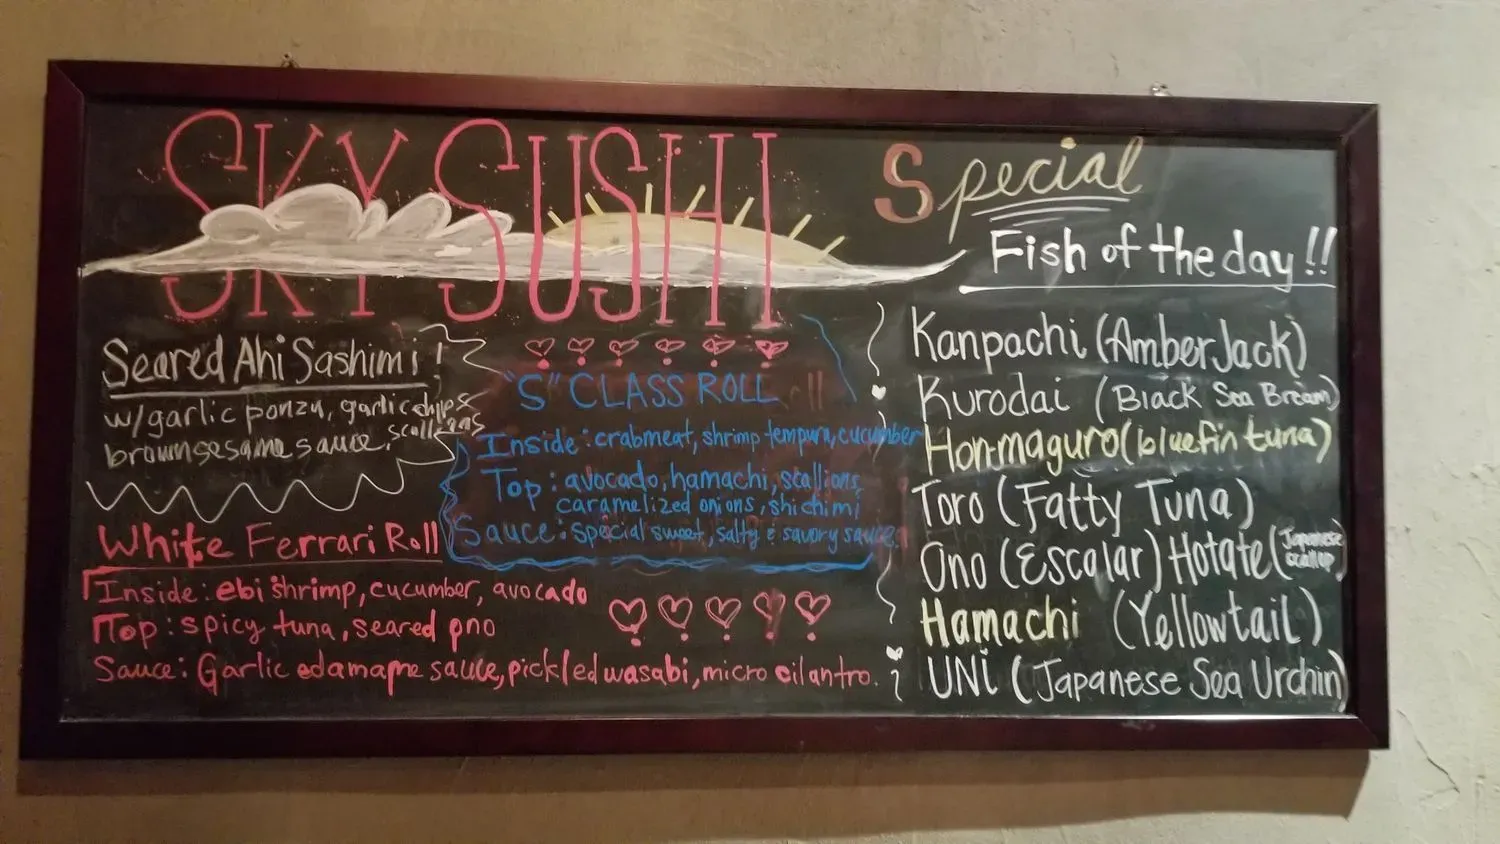 SKY SUSHI
Seared Ahi Sashimi!
w/garlic ponzu, garlic chips
brown sesame sauce, scallions
"S" CLASS ROLL
Inside: crabmeat, shrimp tempura, cucumber
Top: avocado, hamachi, scallions,
caramelized onions, shichimi
Sauce: special sweet, salty & savory sauce
White Ferrari Roll
Inside: ebi shrimp, cucumber, avocado
Top: spicy tuna, seared ono
Sauce: Garlic edamame sauce, pickled wasabi, micro cilantro.
Special
Fish of the day!!
Kanpachi (Amber Jack)
Kurodai (Black Sea Bream)
Hon-maguro (bluefin tuna)
Toro (Fatty Tuna)
Ono (Escolar) Hotate (Japanese scallop)
Hamachi (Yellowtail)
UNi (Japanese Sea Urchin)